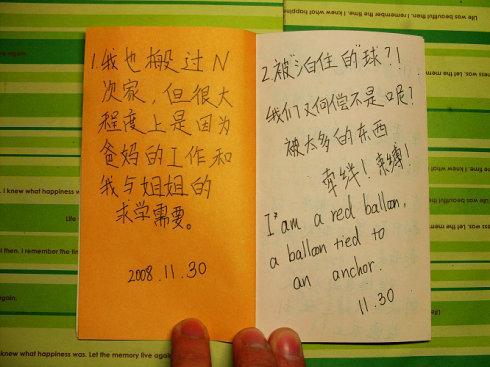 1.我也搬过N
次家,但很大
程度上是因为
爸妈的工作和
我与姐姐的
求学需要。
2008.11.30
2.被"泊住的"球?!
我们又何偿不是呢?
被太多的东西
牵绊!束缚!
I'am a red balloon,
a balloon tied to
an anchor.
11.30
I knew what happiness was
Life
then. I remember the time
again.
knew what happiness was. Let the memory live again
Life was beautiful then. I remember the time. I knew what hap